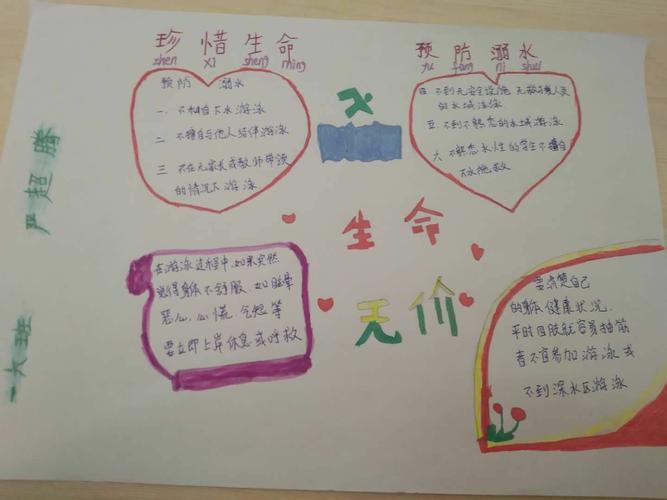 珍惜生命
zhen xi sheng ming
预防溺水
yu fang ni shui
预防 溺水
一 不私自下水游泳
二 不擅自与他人结伴游泳
三 不在无家长或教师带领
的情况下游泳
四 不到无安全设施 无救援人员
的水域游泳
五 不到不熟悉的水域游泳
六 不熟悉水性的学生不擅自
下水施救
生命
无价
在游泳过程中,如果突然
觉得身体不舒服,如眩晕
恶心,心慌,气短等
要立即上岸休息或呼救
要清楚自己
的身体健康状况,
平时四肢就容易抽筋
者不宜参加游泳或
不到深水区游泳
一六班 严超腾